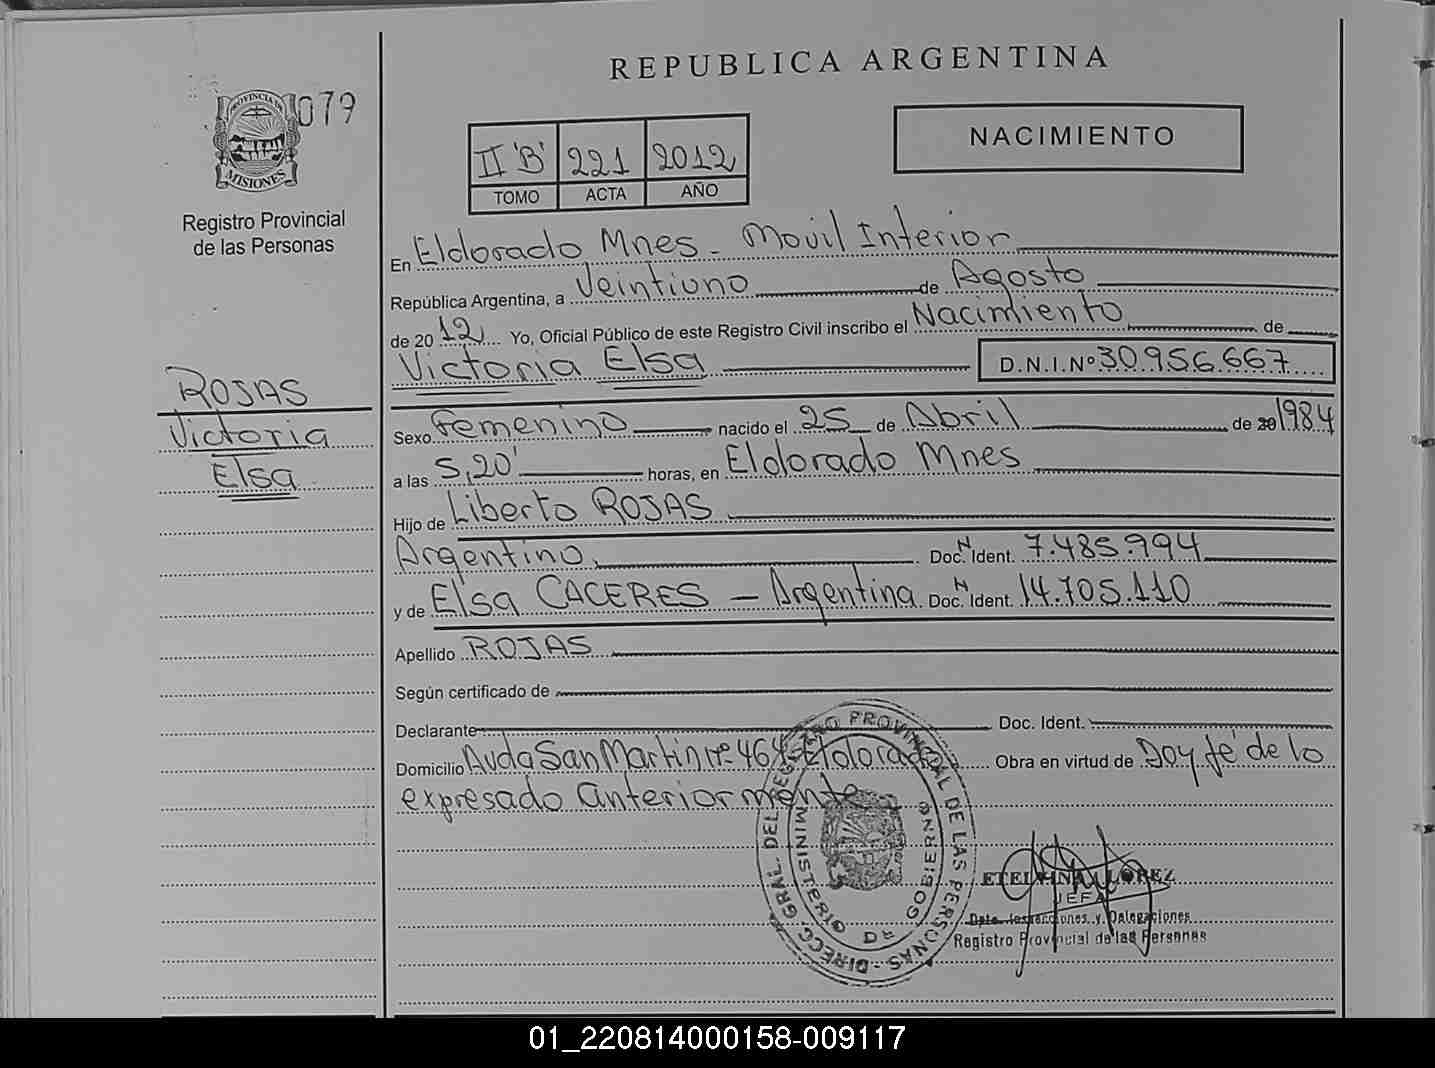 REPUBLICA ARGENTINA
079
PROVINCIA DE
MISIONES
Registro Provincial
de las Personas
II 'B' 221 2012
TOMO ACTA AÑO
NACIMIENTO
En Eldorado Mnes - Movil Interior
República Argentina, a Veintiuno de Agosto
de 2012 Yo, Oficial Público de este Registro Civil inscribo el Nacimiento de
Victoria Elsa D.N.I.Nº 30.956.667
ROJAS
Victoria
Elsa
Sexo Femenino nacido el 25 de Abril de 20 1984
a las 5,20' horas, en Eldorado Mnes
Hijo de Liberto ROJAS
Argentino Doc. N Ident. 7.485.994
y de Elsa CACERES - Argentina Doc. N Ident. 14.705.110
Apellido ROJAS
Según certificado de
Declarante Doc. Ident.
Domicilio Avda San Martin nº 464 Eldorado Obra en virtud de Doy fé de lo
expresado anteriormente
DIRECC. GRAL. DEL REGISTRO PROVINCIAL DE LAS PERSONAS -
MINISTERIO DE GOBIERNO
ETELVINA LOPEZ
JEFA
Dpto. Inspecciones y Delegaciones
Registro Provincial de las Personas
01_220814000158-009117